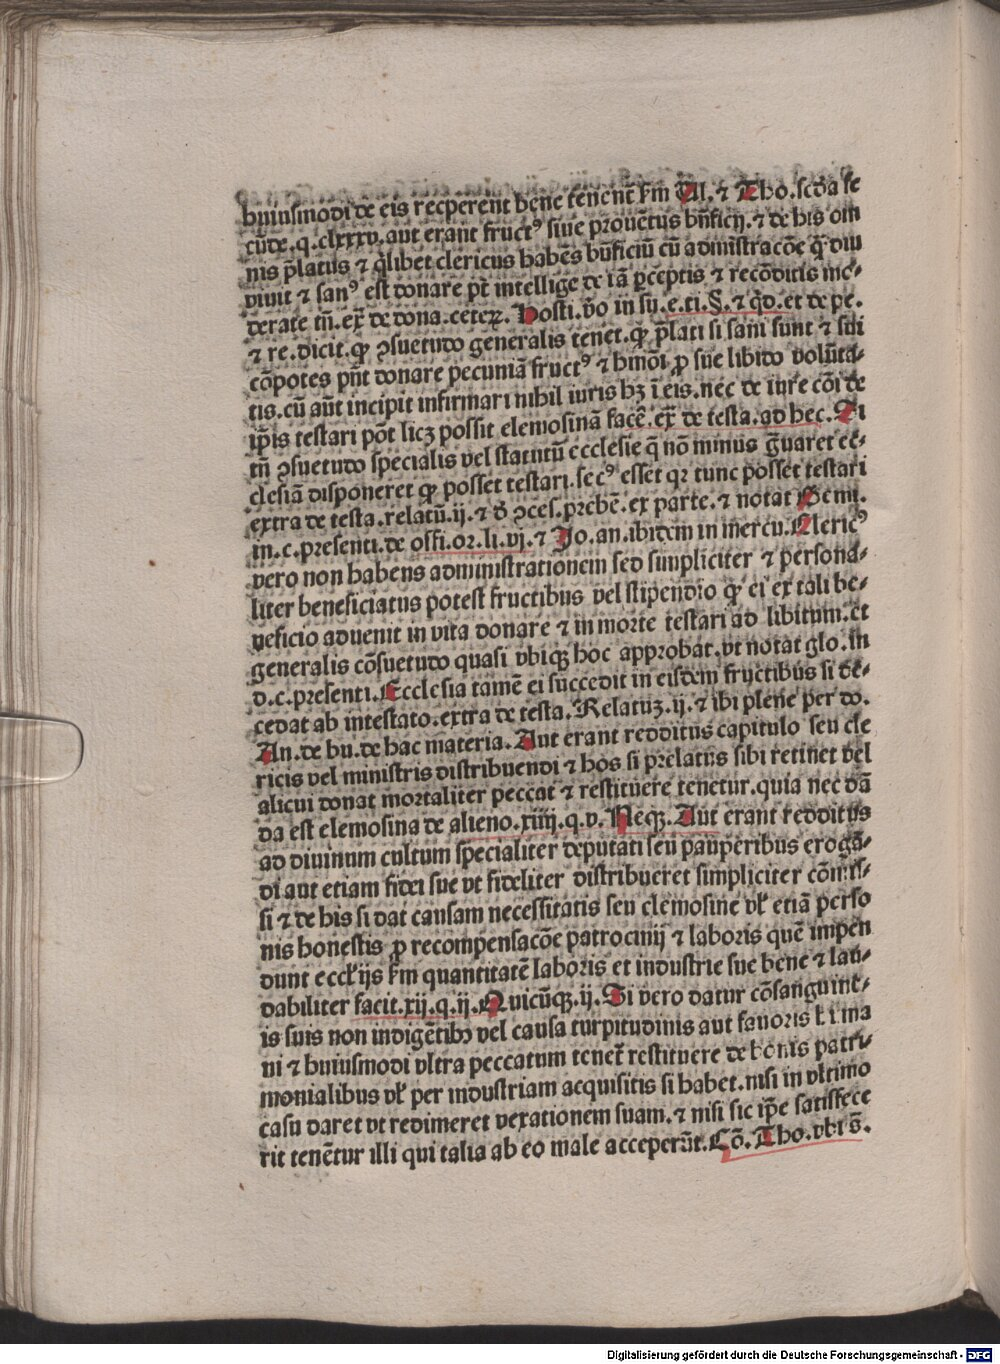 huiusmodi de eis reciperent bene tenent̄ ẜm Al. ⁊ Tho. scd̄a se
cūde. q. clxxxv. aut erant fruct⁹ siue prouētus bn̄ficij. ⁊ de his om
nis p̄latus ⁊ q̄libet clericus habēs bn̄ficiū cū admīstracōe q̄ diu
viuit ⁊ san⁹ est donare pt̄ intellige de iā ꝑceptis ⁊ recōditis mo-
derate tn̄. ex̄ de dona. ceteꝝ. Hosti. v̄o in sū. e. ti. §. ⁊ qd̄. et de pe.
⁊ re. dicit. ꝙ ꝯsuetudo generalis tenet. ꝙ p̄lati si sani sunt ⁊ sui
cōpotes pn̄t donare pecuniā fruct⁹ ⁊ hmōi ꝓ sue libito volūta-
tis. cū aūt incipit infirmari nihil iuris hꝫ ī eis. nec de iure cōi de
ip̄is testari pōt licꝫ possit elemosinā facē. ex̄ de testa. ad hec. Si
tn̄ ꝯsuetudo specialis vel statutū ecclesie q̄ nō minus ḡuaret ec-
clesiā disponeret ꝙ posset testari. sec⁹ esset qꝛ tunc posset testari
extra de testa. relatū. ij. ⁊ d̄ ꝯces. prebē. ex parte. ⁊ notat Gemi.
in. c. presenti. de offi. or. li. vj. ⁊ Jo. an. ibidem in mercu. Cleric⁹
vero non habens administrationem sed simpliciter ⁊ persona-
liter beneficiatus potest fructibus vel stipendio ꝙ ei ex tali be-
neficio aduenit in vita donare ⁊ in morte testari ad libitum. et
generalis cōsuetudo quasi vbiqꝫ hoc approbat. vt notat glo. in
d. c. presenti. Ecclesia tamē ei succedit in eisdem fructibus si de-
cedat ab intestato. extra de testa. Relatuꝫ. ij. ⁊ ibi plene per do.
An. de bu. de hac materia. Aut erant redditus capitulo seu cle
ricis vel ministris distribuendi ⁊ hos si prelatus sibi retinet vel
alicui donat mortaliter peccat ⁊ restituere tenetur. quia nec dā
da est elemosina de alieno. xiiij. q. v. Neqꝫ. Aut erant redditus
ad diuinum cultum specialiter deputati seu pauperibus erogā-
di aut etiam fidei sue vt fideliter distribueret simpliciter cōmis-
si ⁊ de his si dat causam necessitatis seu elemosine vl̓ etiā perso
nis honestis ꝓ recompensacōe patrocinij ⁊ laboris quē impen
dunt eccl̓ijs ẜm quantitatē laboris et industrie sue bene ⁊ lau-
dabiliter facit. xij. q. ij. Quicūqꝫ. ij. Si vero datur cōsanguine-
is suis non indigētibꝰ vel causa turpitudinis aut fauoris
ni ⁊ huiusmodi vltra peccatum tenet̄ restituere de bonis patri-
monialibus vl̓ per industriam acquisitis si habet. nisi in vltimo
casu daret vt redimeret vexationem suam. ⁊ nisi sic ip̄e satisfece
rit tenētur illi qui talia ab eo male acceperūt. Cō. Tho. vbi s̄.
Digitalisierung gefördert durch die Deutsche Forschungsgemeinschaft - DFG